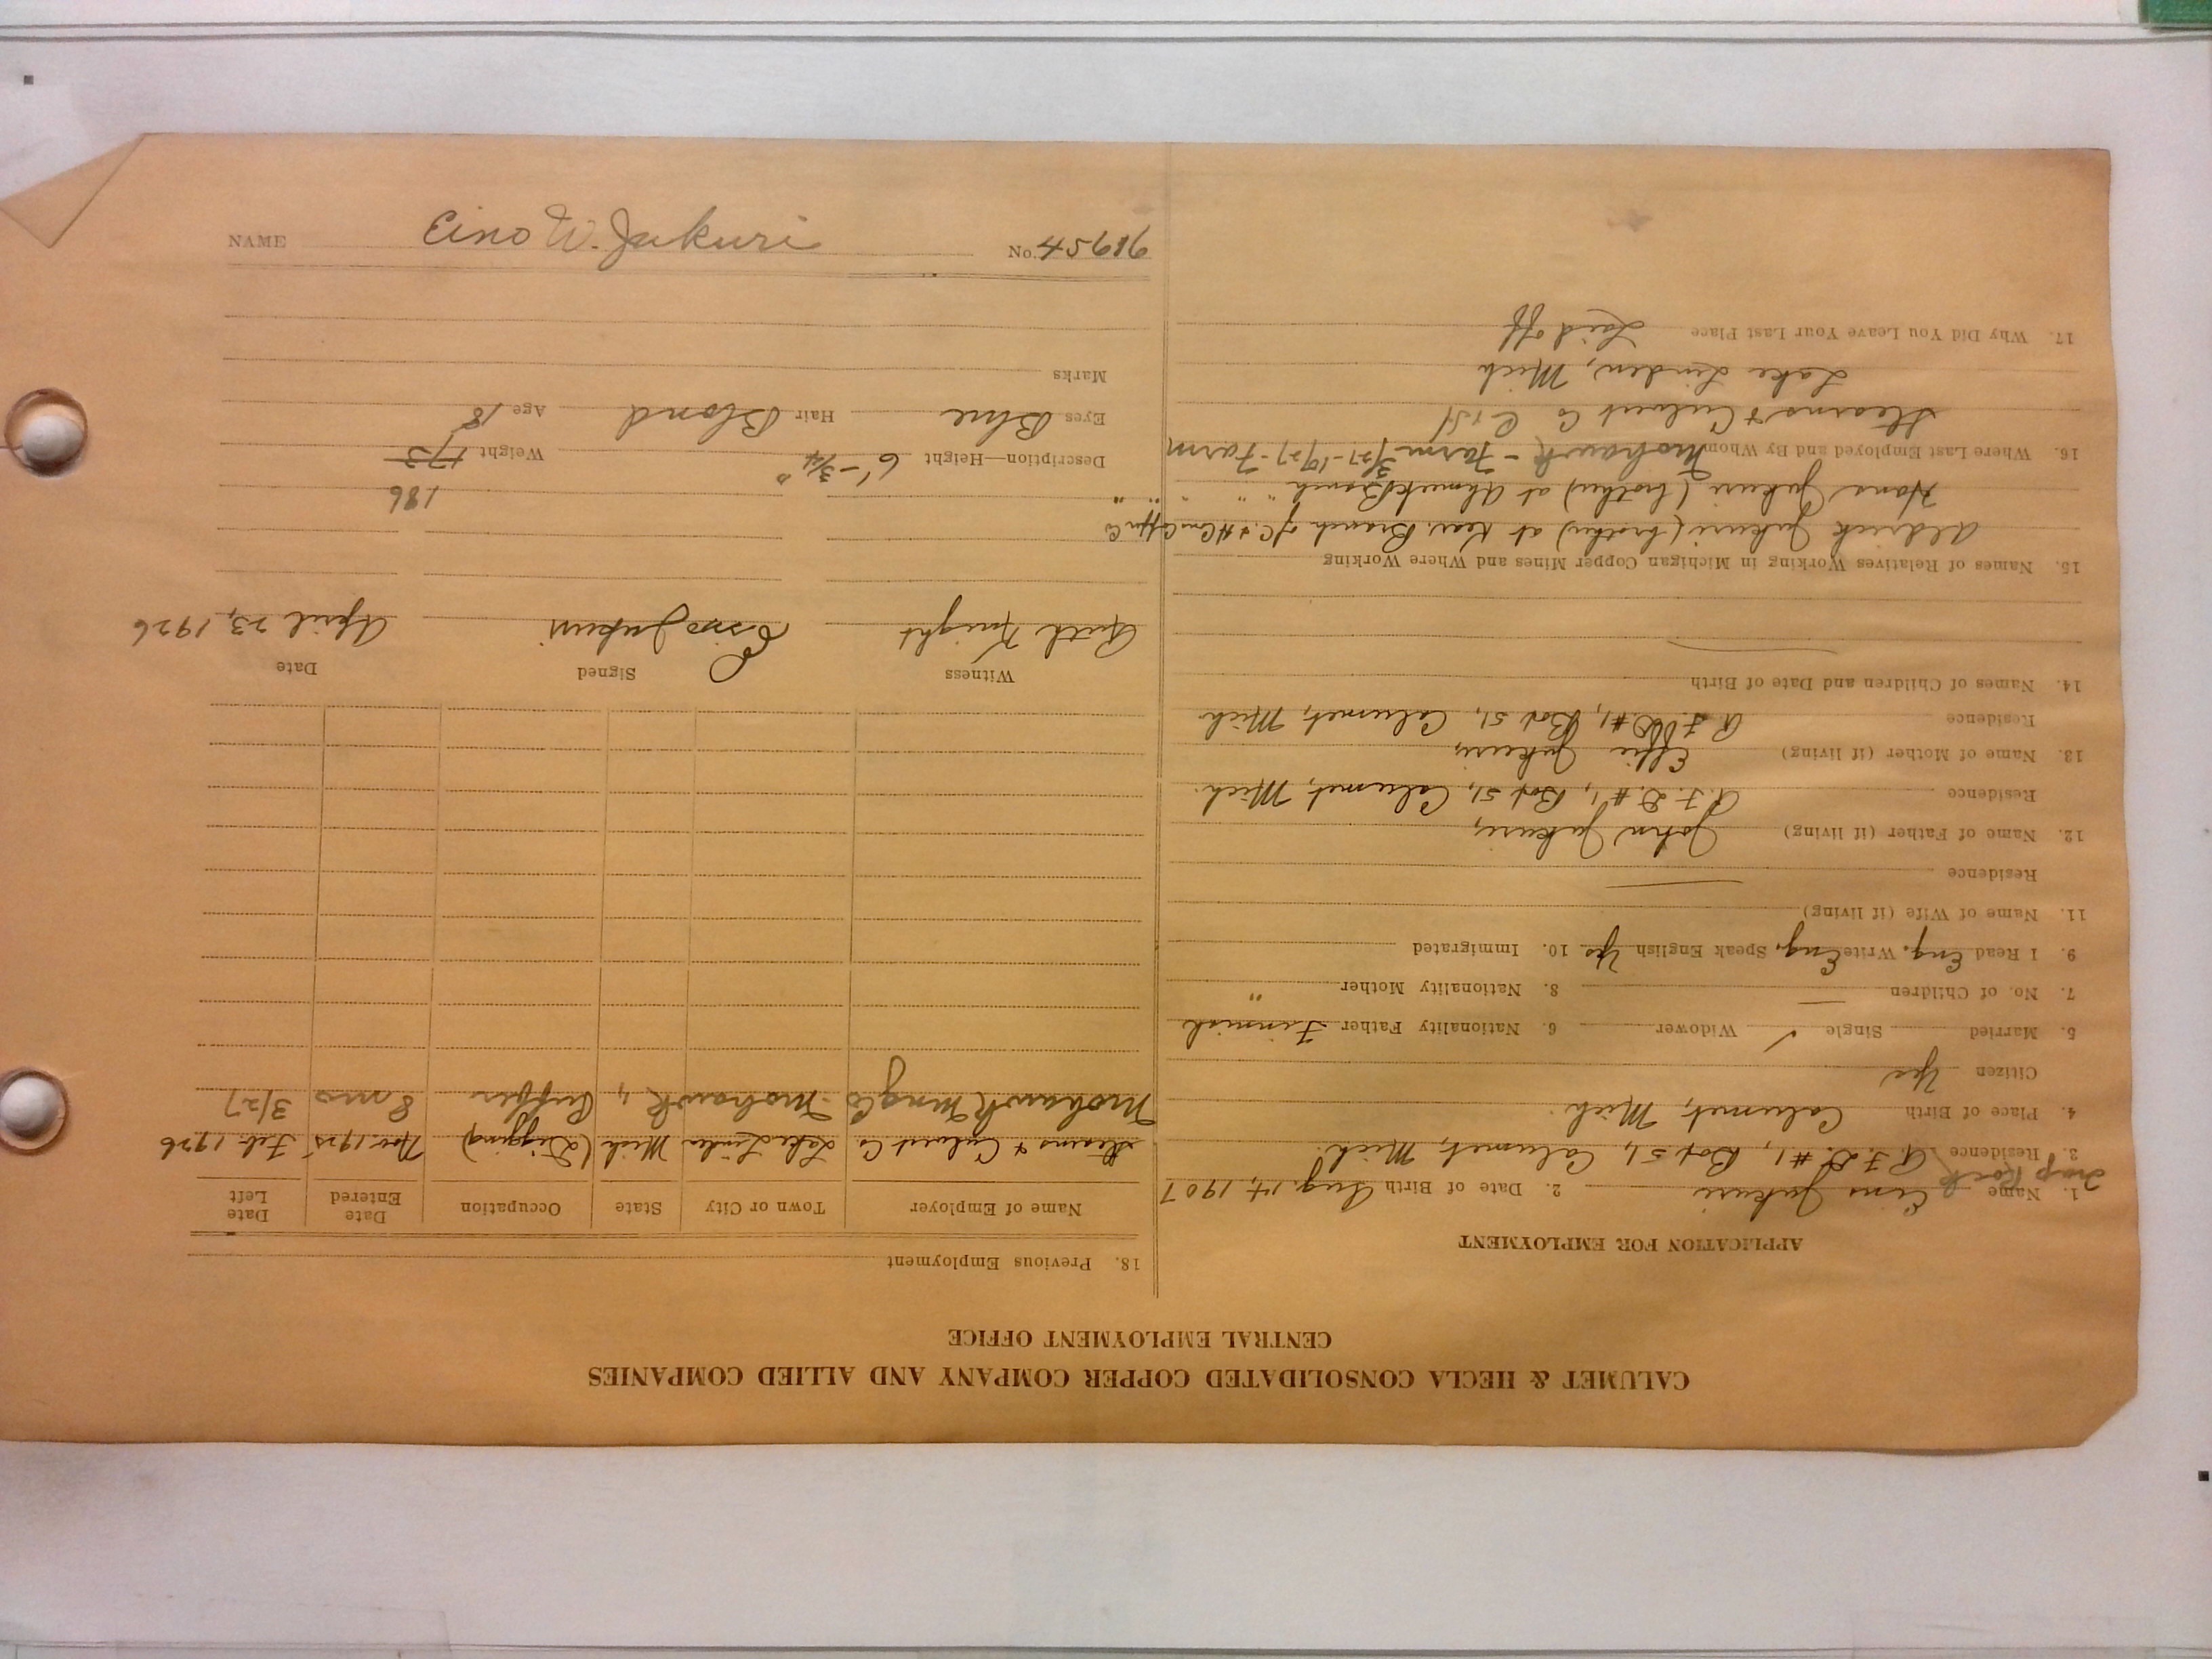 NAME Eino W. Jukuri No. 45696
CALUMET & HECLA CONSOLIDATED COPPER COMPANY AND ALLIED COMPANIES
CENTRAL EMPLOYMENT OFFICE
APPLICATION FOR EMPLOYMENT
1. Name Eino Jukuri 2. Date of Birth Aug. 14, 1907
Trap Rock
3. Residence R.F.D. #1, Box 51, Calumet, Mich.
4. Place of Birth Calumet, Mich.
Citizen Yes
5. Married Single ✓ Widower 6. Nationality Father Finnish
7. No. of Children — 8. Nationality Mother "
9. I Read Eng. Write Eng. Speak English Yes 10. Immigrated
11. Name of Wife (if living)
Residence
12. Name of Father (if living) John Jukuri,
Residence R.F.D. #1, Box 51, Calumet, Mich.
13. Name of Mother (if living) Effie Jukuri,
Residence R.F.D. #1, Box 51, Calumet, Mich.
14. Names of Children and Date of Birth
15. Names of Relatives Working in Michigan Copper Mines and Where Working
Aldrick Jukuri (brother) at Kear. Branch of C. & H. Con. Copper Co
Hans Jukuri (brother) at Ahmeek Branch " " " "
16. Where Last Employed and By Whom Mohawk - Farm 3/27-10/27-Farm
Stearns & Culvert Co
Lake Linden, Mich
17. Why Did You Leave Your Last Place Laid off
18. Previous Employment
Name of Employer Town or City State Occupation Date Entered Date Left
Stearns & Culvert Co Lake Linden Mich (Digging) Nov. 1925 Feb. 1926
Mohawk Mng Co Mohawk " Puffer 8 mos 3/27
Witness Signed Date
Ruth Knight Eino Jukuri April 23, 1926
186
Description—Height 6'-3/4" Weight 175
Eyes Blue Hair Blond Age 18
Marks